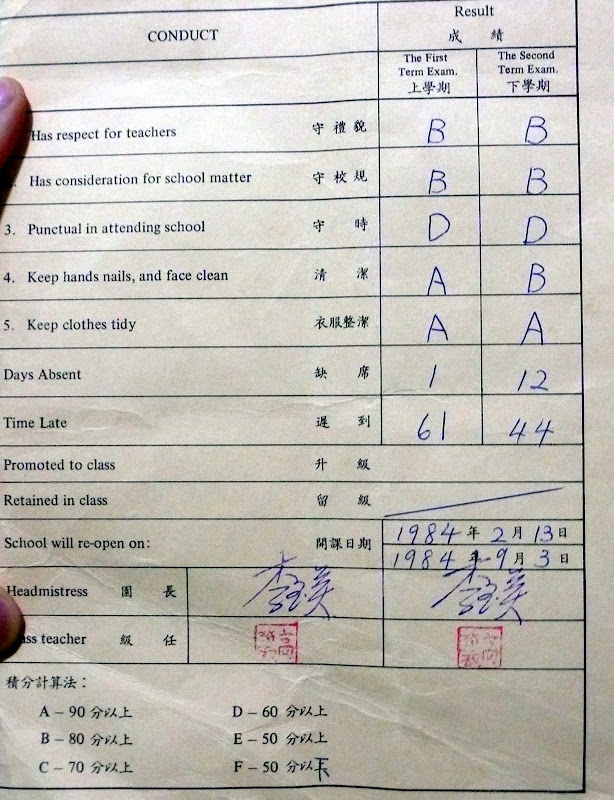 CONDUCT
Result
成績
The First Term Exam. 上學期
The Second Term Exam. 下學期
Has respect for teachers 守禮貌 B B
Has consideration for school matter 守校規 B B
3. Punctual in attending school 守時 D D
4. Keep hands nails, and face clean 清潔 A B
5. Keep clothes tidy 衣服整潔 A A
Days Absent 缺席 1 12
Time Late 遲到 61 44
Promoted to class 升級
Retained in class 留級
School will re-open on: 開課日期 1984年2月13日
1984年9月3日
Headmistress 園長
ss teacher 級任
積分計算法：
A – 90 分以上 D – 60 分以上
B – 80 分以上 E – 50 分以上
C – 70 分以上 F – 50 分以下